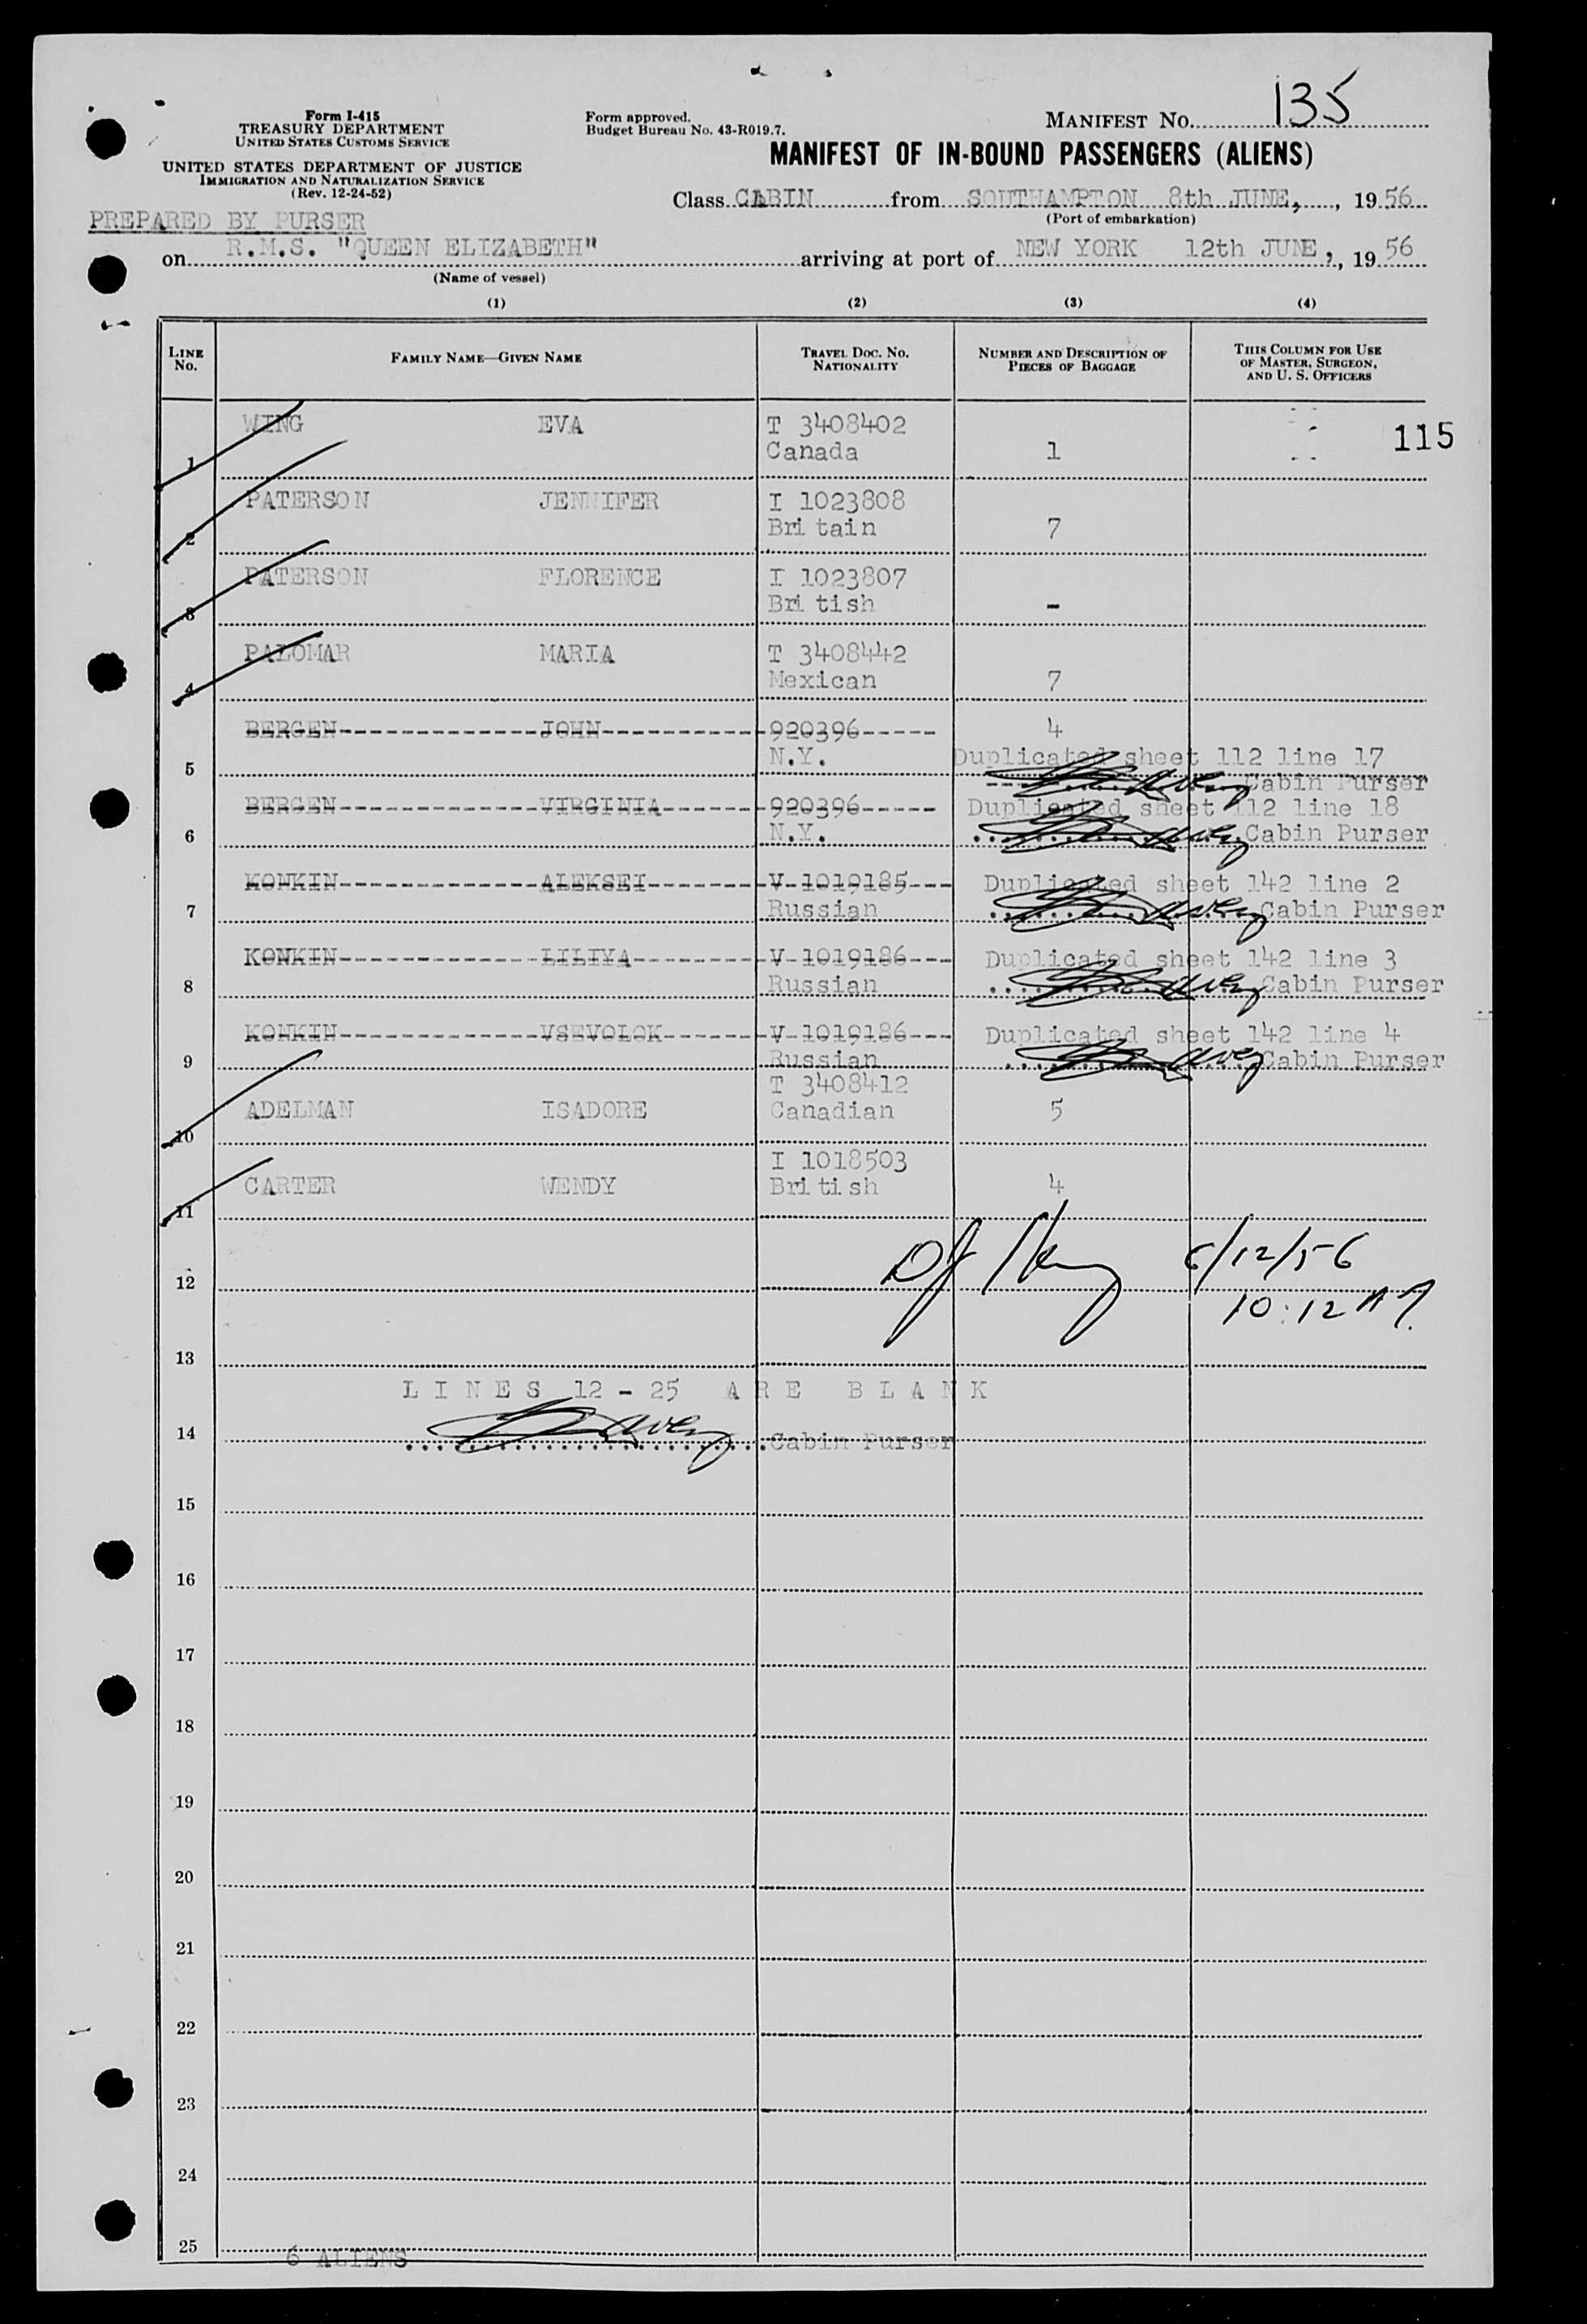 MANIFEST No. 135
Form I-415
TREASURY DEPARTMENT
UNITED STATES CUSTOMS SERVICE
UNITED STATES DEPARTMENT OF JUSTICE
IMMIGRATION AND NATURALIZATION SERVICE
(Rev. 12-24-52)
Form approved.
Budget Bureau No. 43-R019.7.
MANIFEST OF IN-BOUND PASSENGERS (ALIENS)
Class CABIN from SOUTHAMPTON 8th JUNE, , 1956
(Port of embarkation)
PREPARED BY PURSER
on R.M.S. "QUEEN ELIZABETH" arriving at port of NEW YORK 12th JUNE, , 1956
(Name of vessel)
(1) (2) (3) (4)
LINE No. FAMILY NAME—GIVEN NAME TRAVEL DOC. NO. NATIONALITY NUMBER AND DESCRIPTION OF PIECES OF BAGGAGE THIS COLUMN FOR USE OF MASTER, SURGEON, AND U. S. OFFICERS
WING EVA T 3408402
115
1 Canada 1
PATERSON JENNIFER I 1023808
2 Britain 7
PATERSON FLORENCE I 1023807
3 British -
PALOMAR MARIA T 3408442
4 Mexican 7
BERGEN JOHN 920396 4
5 N.Y. Duplicated sheet 112 line 17
Cabin Purser
BERGEN VIRGINIA 920396 Duplicated sheet 112 line 18
6 N.Y. Cabin Purser
KONKIN ALEKSEI V 1019185 Duplicated sheet 142 line 2
7 Russian Cabin Purser
KONKIN LILIYA V 1019186 Duplicated sheet 142 line 3
8 Russian Cabin Purser
KONKIN VSEVOLOK V 1019186 Duplicated sheet 142 line 4
9 Russian Cabin Purser
T 3408412
10 ADELMAN ISADORE Canadian 5
I 1018503
11 CARTER WENDY British 4
6/12/56
12
10:12 AM
13
LINES 12 - 25 ARE BLANK
14 Cabin Purser
15
16
17
18
19
20
21
22
23
24
25
6 ALIENS